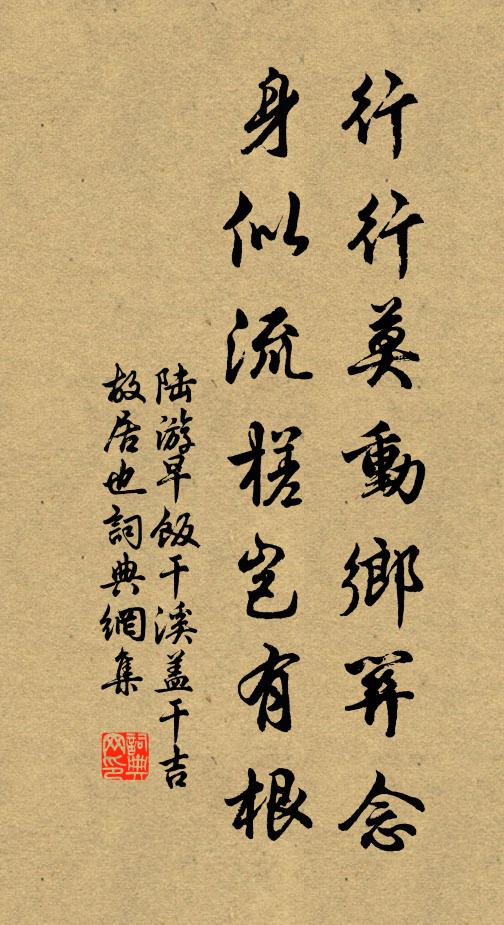 行行莫動鄉関念
身似流槎岂有根
陆游早飯干溪盖干吉
故居也詞典網集
詞典
网印